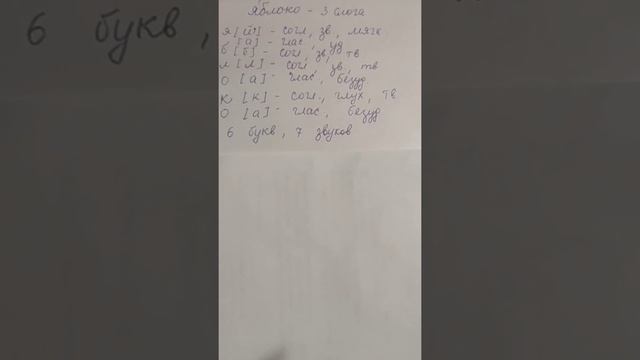 яблоко - 3 слога
я [й'] - согл, зв, мягк
[а] - глас, уд
б [б] - согл, зв, тв
л [л] - согл, зв, тв
о [а] - глас, безуд
к [к] - согл., глух, тв
о [а] - глас, безуд
6 букв, 7 звуков
6 букв,